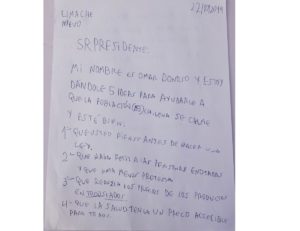 LIMACHE
NUEVO
SR PRESIDENTE:
MI NOMBRE ES OMAR DONOSO Y ESTOY
DÁNDOLE 5 IDEAS PARA AYUDARLE A
QUE LA POBLACIÓN CHILENA SE CALME
Y ESTÉ BIEN.
1- QUE USTED PIENSE ANTES DE HACER UNA
LEY.
2- QUE HAYA PARA LAS PERSONAS
Y QUE HAYA MENOS POBREZA
3- QUE LOS PRECIOS DE LOS PRODUCTOS
EN
4- QUE LA SALUD TENGA UN PRECIO ACCESIBLE
PARA TODOS.